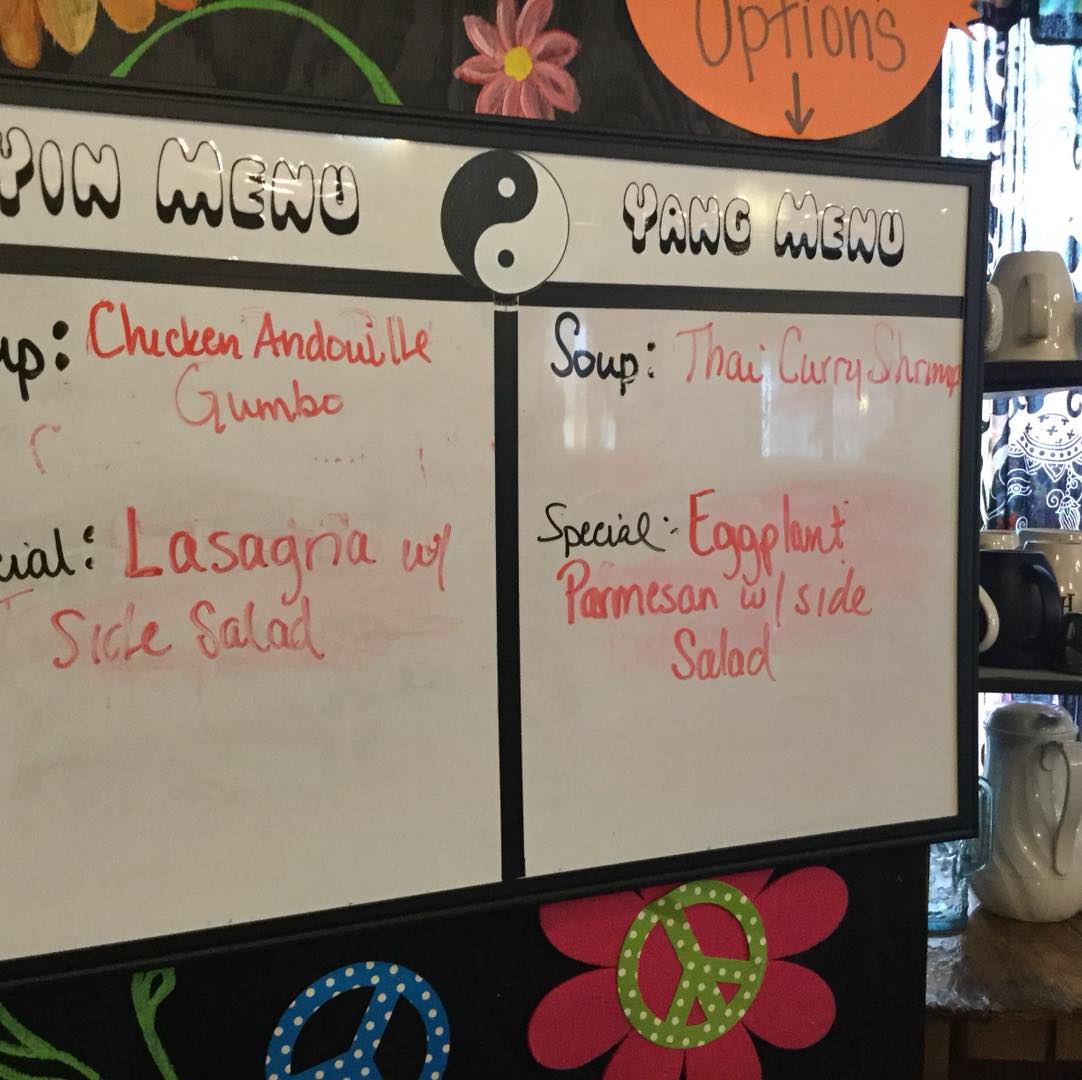 Options
YIN MENU
YANG MENU
up: Chicken Andouille
Gumbo
cial: Lasagna w/
Side Salad
Soup: Thai Curry Shrimp
Special: Eggplant
Parmesan w/ side
Salad